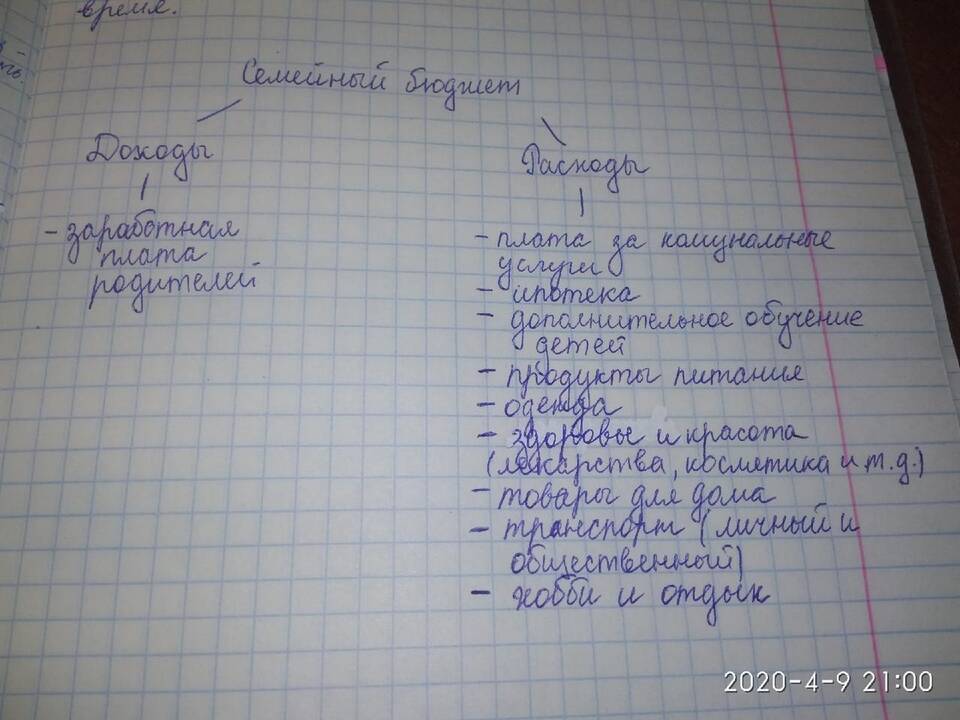 время.
Семейный бюджет
Доходы
- заработная
плата
родителей
Расходы
- плата за комунальные
услуги
- ипотека
- дополнительное обучение
детей
- продукты питания
- одежда
- здоровье и красота
(лекарства, косметика и т.д.)
- товары для дома
- транспорт (личный и
общественный)
- хобби и отдых
2020-4-9 21:00